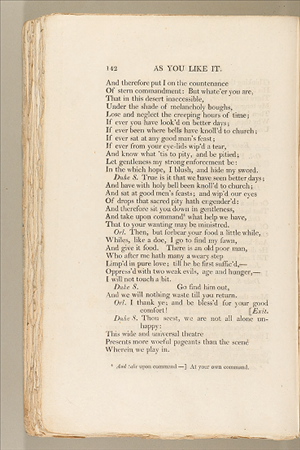 142 AS YOU LIKE IT.
And therefore put I on the countenance
Of stern commandment: But whate'er you are,
That in this desert inaccessible,
Under the shade of melancholy boughs,
Lose and neglect the creeping hours of time;
If ever you have look'd on better days;
If ever been where bells have knoll'd to church;
If ever sat at any good man's feast;
If ever from your eye-lids wip'd a tear,
And know what 'tis to pity, and be pitied;
Let gentleness my strong enforcement be:
In the which hope, I blush, and hide my sword.
Duke S. True is it that we have seen better days;
And have with holy bell been knoll'd to church;
And sat at good men's feasts; and wip'd our eyes
Of drops that sacred pity hath engender'd:
And therefore sit you down in gentleness,
And take upon command* what help we have,
That to your wanting may be ministred.
Orl. Then, but forbear your food a little while,
Whiles, like a doe, I go to find my fawn,
And give it food. There is an old poor man,
Who after me hath many a weary step
Limp'd in pure love; till he be first suffic'd,—
Oppress'd with two weak evils, age and hunger,—
I will not touch a bit.
Duke S. Go find him out,
And we will nothing waste till you return.
Orl. I thank ye: and be bless'd for your good
comfort! [Exit.
Duke S. Thou seest, we are not all alone un-
happy:
This wide and universal theatre
Presents more woeful pageants than the scene
Wherein we play in.
* And take upon command—] At your own command.